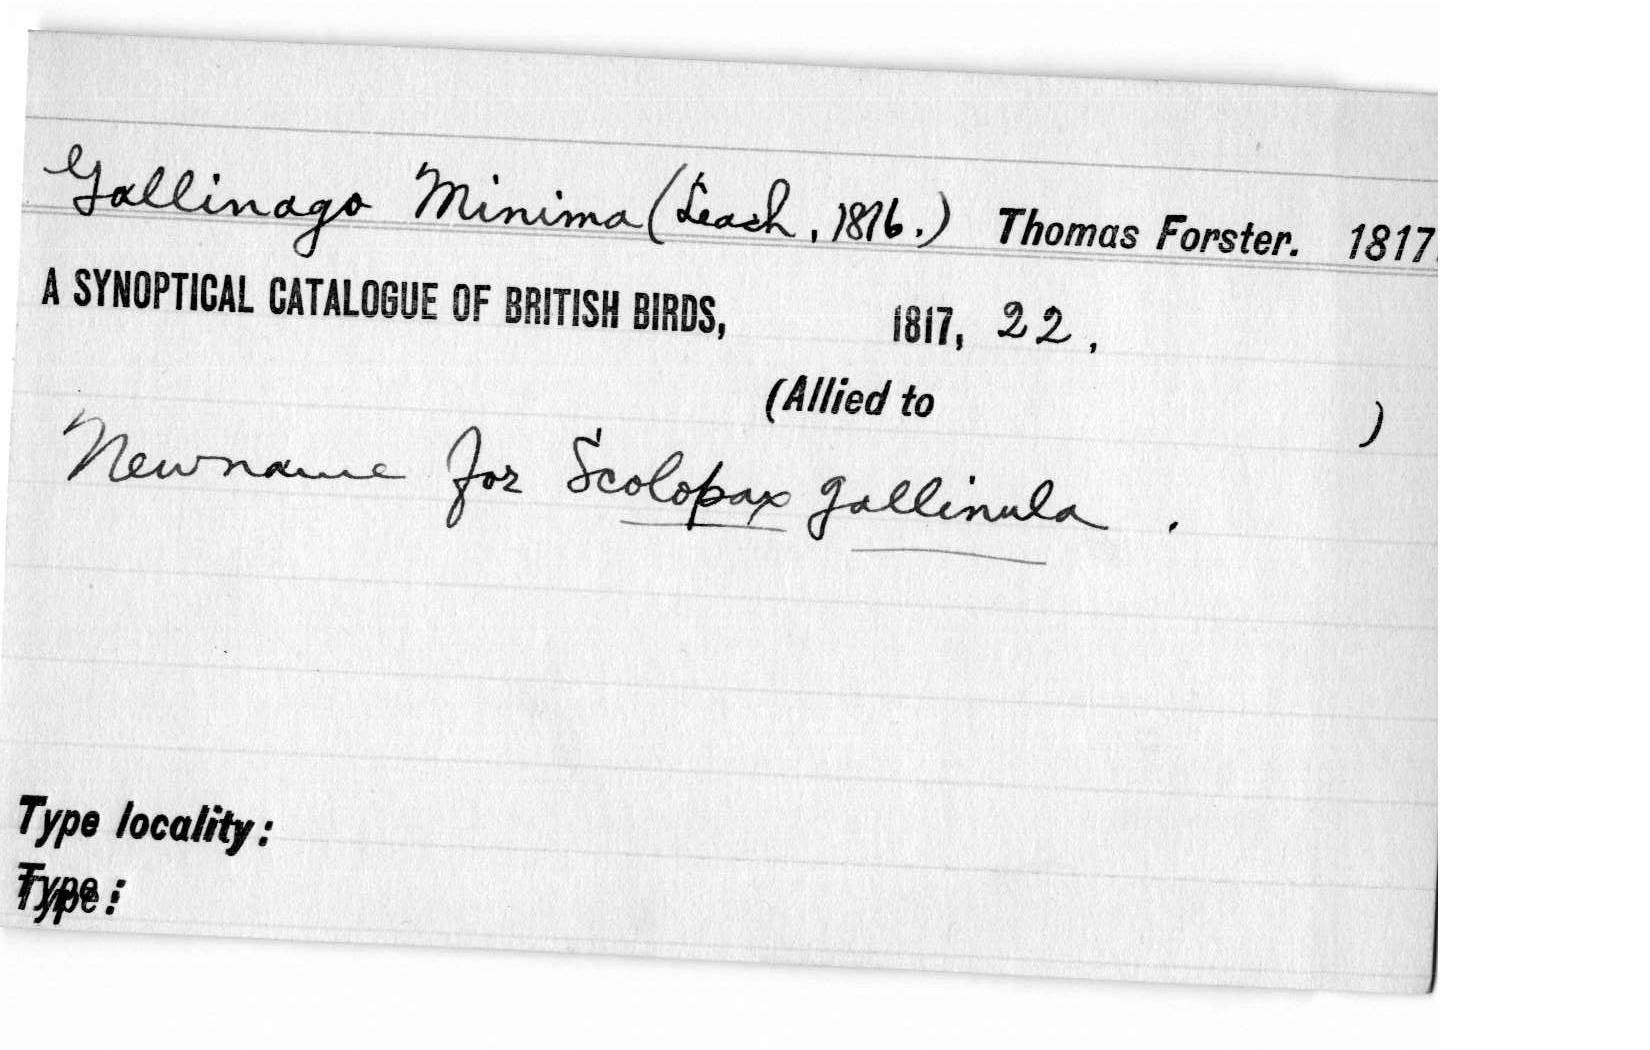 Gallinago Minima (Leach, 1816.) Thomas Forster. 1817.
A SYNOPTICAL CATALOGUE OF BRITISH BIRDS, 1817, 22.
(Allied to )
New name for Scolopax gallinula.
Type locality:
Type: